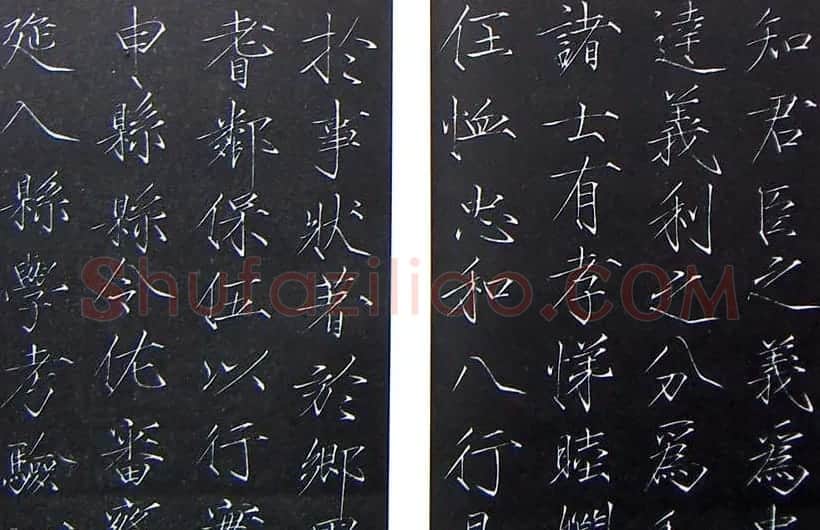 知君臣之義為
達義利之分爲
諸士有孝悌睦
任恤忠和八行
於事狀著於鄉
耆鄰保伍以行
申縣縣令佐審
延入縣學考驗
Shufaziliao.COM